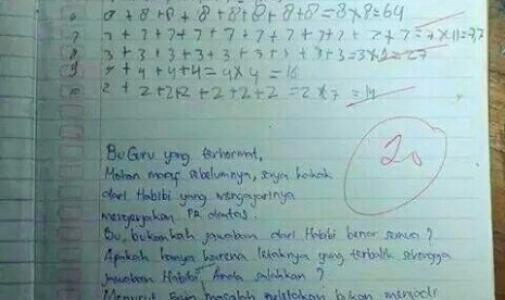 6 8 + 8 + 8 + 8 + 8 + 8 + 8 + 8 = 8 x 8 = 64
7 7 + 7 + 7 + 7 + 7 + 7 + 7 + 7 + 7 + 7 + 7 = 7 x 11 = 77
8 3 + 3 + 3 + 3 + 3 + 3 + 3 + 3 + 3 = 3 x 9 = 27
9 4 + 4 + 4 + 4 = 4 x 4 = 16
10 2 + 2 + 2 + 2 + 2 + 2 + 2 = 2 x 7 = 14
20
Bu Guru yang terhormat,
Mohon maaf sebelumnya, saya kakak
dari Habibi yang mengajarinya
mengerjakan PR diatas.
Bu, bukankah jawaban dari Habibi benar semua?
Apakah hanya karena letaknya yang terbalik sehingga
jawaban Habibi Anda salahkan?
Menurut saya masalah peletakan bukan menjadi